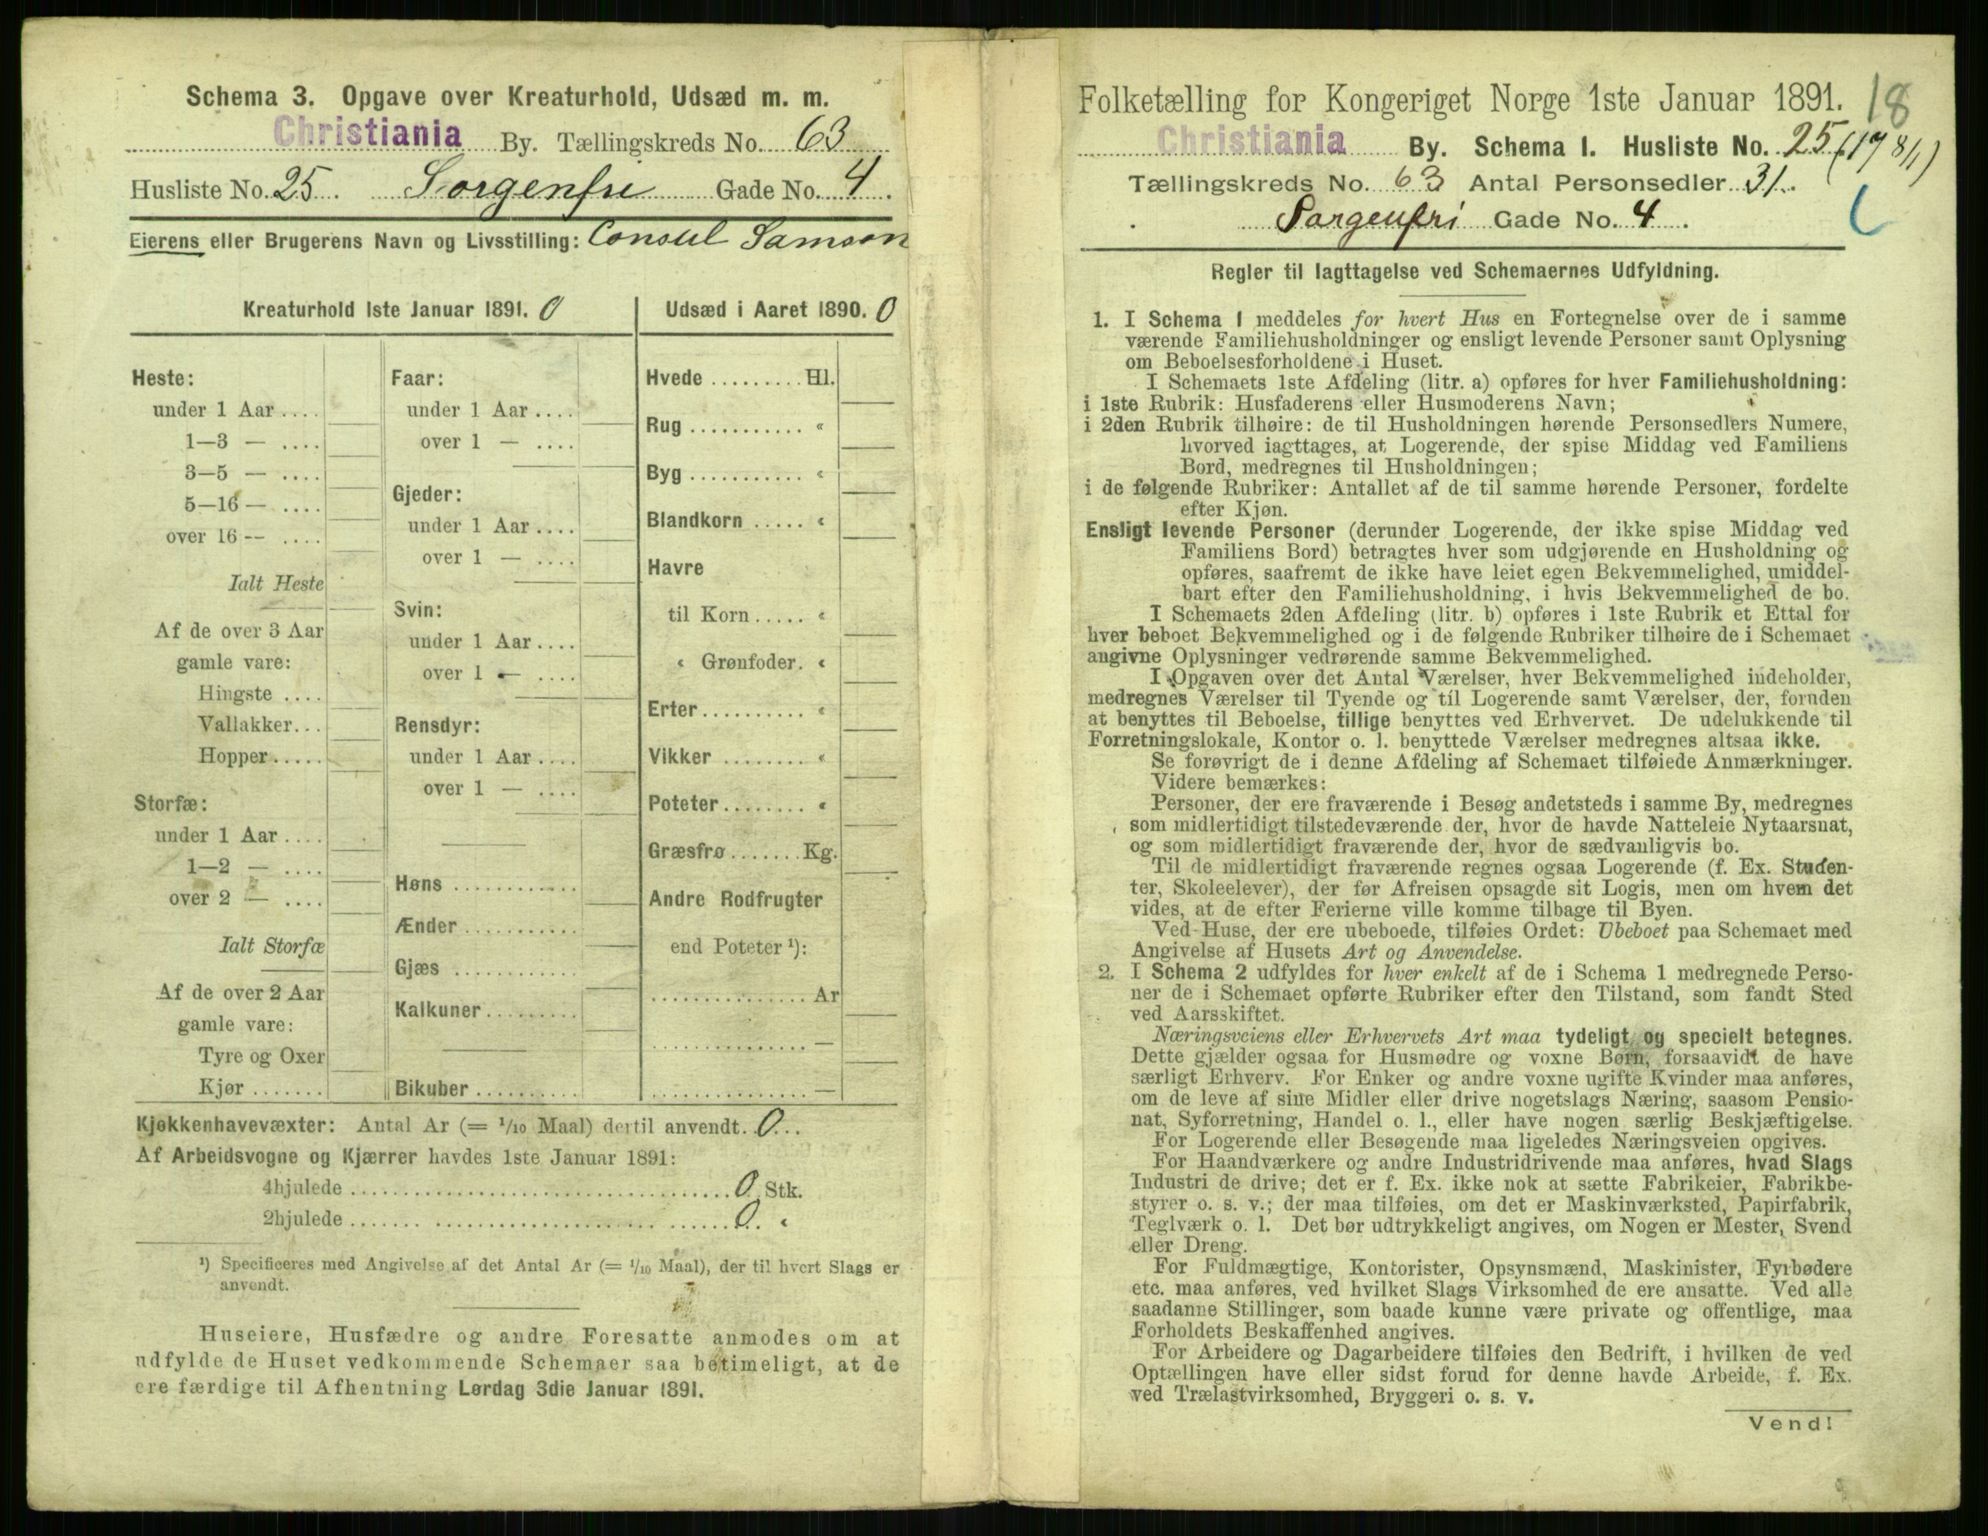 Schema 3. Opgave over Kreaturhold, Udsæd m. m.
Christiania By. Tællingskreds No. 63
Husliste No. 25. Sorgenfri Gade No. 4.
Eierens eller Brugerens Navn og Livsstilling: Consul Samson
Kreaturhold 1ste Januar 1891. 0
Heste:
under 1 Aar ....
1—3 — ....
3—5 — ....
5—16 — ....
over 16 — ....
Ialt Heste
Af de over 3 Aar
gamle vare:
Hingste ....
Vallakker...
Hopper.....
Storfæ:
under 1 Aar ....
1—2 — ....
over 2 — ....
Ialt Storfæ
Af de over 2 Aar
gamle vare:
Tyre og Oxer
Kjør .......
Faar:
under 1 Aar ....
over 1 — ....
Gjeder:
under 1 Aar ....
over 1 — ....
Svin:
under 1 Aar ....
over 1 — ....
Rensdyr:
under 1 Aar ....
over 1 — ....
Høns ............
Ænder ...........
Gjæs ............
Kalkuner .........
Bikuber ..........
Udsæd i Aaret 1890. 0
Hvede ......... Hl.
Rug ........... «
Byg ........... «
Blandkorn ..... «
Havre
til Korn ..... «
« Grønfoder. «
Erter.......... «
Vikker ........ «
Poteter ........ «
Græsfrø ....... Kg.
Andre Rodfrugter
end Poteter ¹):
............... Ar
............... —
............... —
Kjøkkenhavevæxter: Antal Ar (= 1/10 Maal) dertil anvendt. 0...
Af Arbeidsvogne og Kjærrer havdes 1ste Januar 1891:
4hjulede .................................... 0 Stk.
2hjulede .................................... 0. «
¹) Specificeres med Angivelse af det Antal Ar (= 1/10 Maal), der til hvert Slags er
anvendt.
Huseiere, Husfædre og andre Foresatte anmodes om at
udfylde de Huset vedkommende Schemaer saa betimeligt, at de
ere færdige til Afhentning Lørdag 3die Januar 1891.
Folketælling for Kongeriget Norge 1ste Januar 1891. 18
Christiania By. Schema 1. Husliste No. 25 (17 8/1)
Tællingskreds No. 63 Antal Personsedler 31.
Sorgenfri Gade No. 4.
Regler til Iagttagelse ved Schemaernes Udfyldning.
1. I Schema 1 meddeles for hvert Hus en Fortegnelse over de i samme
værende Familiehusholdninger og ensligt levende Personer samt Oplysning
om Beboelsesforholdene i Huset.
I Schemaets 1ste Afdeling (litr. a) opføres for hver Familiehusholdning:
i 1ste Rubrik: Husfaderens eller Husmoderens Navn;
i 2den Rubrik tilhøire: de til Husholdningen hørende Personsedlers Numere,
hvorved iagttages, at Logerende, der spise Middag ved Familiens
Bord, medregnes til Husholdningen;
i de følgende Rubriker: Antallet af de til samme hørende Personer, fordelte
efter Kjøn.
Ensligt levende Personer (derunder Logerende, der ikke spise Middag ved
Familiens Bord) betragtes hver som udgjørende en Husholdning og
opføres, saafremt de ikke have leiet egen Bekvemmelighed, umiddel-
bart efter den Familiehusholdning, i hvis Bekvemmelighed de bo.
I Schemaets 2den Afdeling (litr. b) opføres i 1ste Rubrik et Ettal for
hver beboet Bekvemmelighed og i de følgende Rubriker tilhøire de i Schemaet
angivne Oplysninger vedrørende samme Bekvemmelighed.
I Opgaven over det Antal Værelser, hver Bekvemmelighed indeholder,
medregnes Værelser til Tyende og til Logerende samt Værelser, der, foruden
at benyttes til Beboelse, tillige benyttes ved Erhvervet. De udelukkende til
Forretningslokale, Kontor o. l. benyttede Værelser medregnes altsaa ikke.
Se forøvrigt de i denne Afdeling af Schemaet tilføiede Anmærkninger.
Videre bemærkes:
Personer, der ere fraværende i Besøg andetsteds i samme By, medregnes
som midlertidigt tilstedeværende der, hvor de havde Natteleie Nytaarsnat,
og som midlertidigt fraværende der, hvor de sædvanligvis bo.
Til de midlertidigt fraværende regnes ogsaa Logerende (f. Ex. Studen-
ter, Skoleelever), der før Afreisen opsagde sit Logis, men om hvem det
vides, at de efter Ferierne ville komme tilbage til Byen.
Ved Huse, der ere ubeboede, tilføies Ordet: Ubeboet paa Schemaet med
Angivelse af Husets Art og Anvendelse.
2. I Schema 2 udfyldes for hver enkelt af de i Schema 1 medregnede Perso-
ner de i Schemaet opførte Rubriker efter den Tilstand, som fandt Sted
ved Aarsskiftet.
Næringsveiens eller Erhvervets Art maa tydeligt og specielt betegnes.
Dette gjælder ogsaa for Husmødre og voxne Børn, forsaavidt de have
særligt Erhverv. For Enker og andre voxne ugifte Kvinder maa anføres,
om de leve af sine Midler eller drive nogetslags Næring, saasom Pensio-
nat, Syforretning, Handel o. l., eller have nogen særlig Beskjæftigelse.
For Logerende eller Besøgende maa ligeledes Næringsveien opgives.
For Haandværkere og andre Industridrivende maa anføres, hvad Slags
Industri de drive; det er f. Ex. ikke nok at sætte Fabrikeier, Fabrikbe-
styrer o. s. v.; der maa tilføies, om det er Maskinværksted, Papirfabrik,
Teglværk o. l. Det bør udtrykkeligt angives, om Nogen er Mester, Svend
eller Dreng.
For Fuldmægtige, Kontorister, Opsynsmænd, Maskinister, Fyrbødere
etc. maa anføres, ved hvilket Slags Virksomhed de ere ansatte. Ved alle
saadanne Stillinger, som baade kunne være private og offentlige, maa
Forholdets Beskaffenhed angives.
For Arbeidere og Dagarbeidere tilføies den Bedrift, i hvilken de ved
Optællingen have eller sidst forud for denne havde Arbeide, f. Ex.
ved Trælastvirksomhed, Bryggeri o. s. v.
Vend!